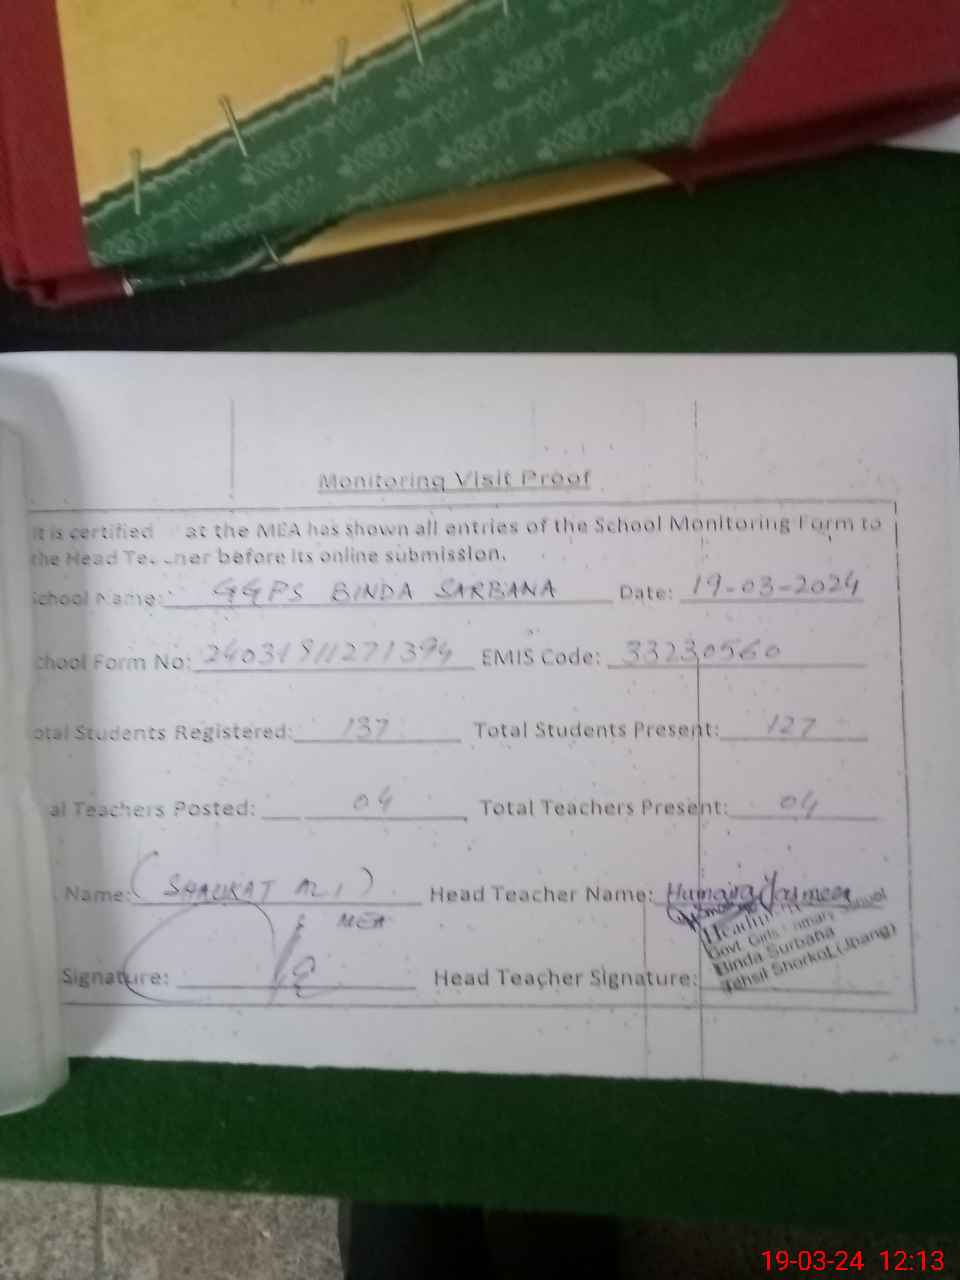 Monitoring Visit Proof
It is certified at the MEA has shown all entries of the School Monitoring Form to
the Head Te ner before its online submission.
School Name: GGPS BINDA SARBANA Date: 19-03-2024
chool Form No: 24031911271394 EMIS Code: 33230560
otal Students Registered: 137 Total Students Present: 127
al Teachers Posted: 04 Total Teachers Present: 04
Name: (SHAUKAT ALI) Head Teacher Name: Humaira Yasmeen
MEA
Govt. Girls Primary School
Binda Surbana
Tehsil Shorkot (Jhang)
Signature: Head Teacher Signature:
19-03-24 12:13